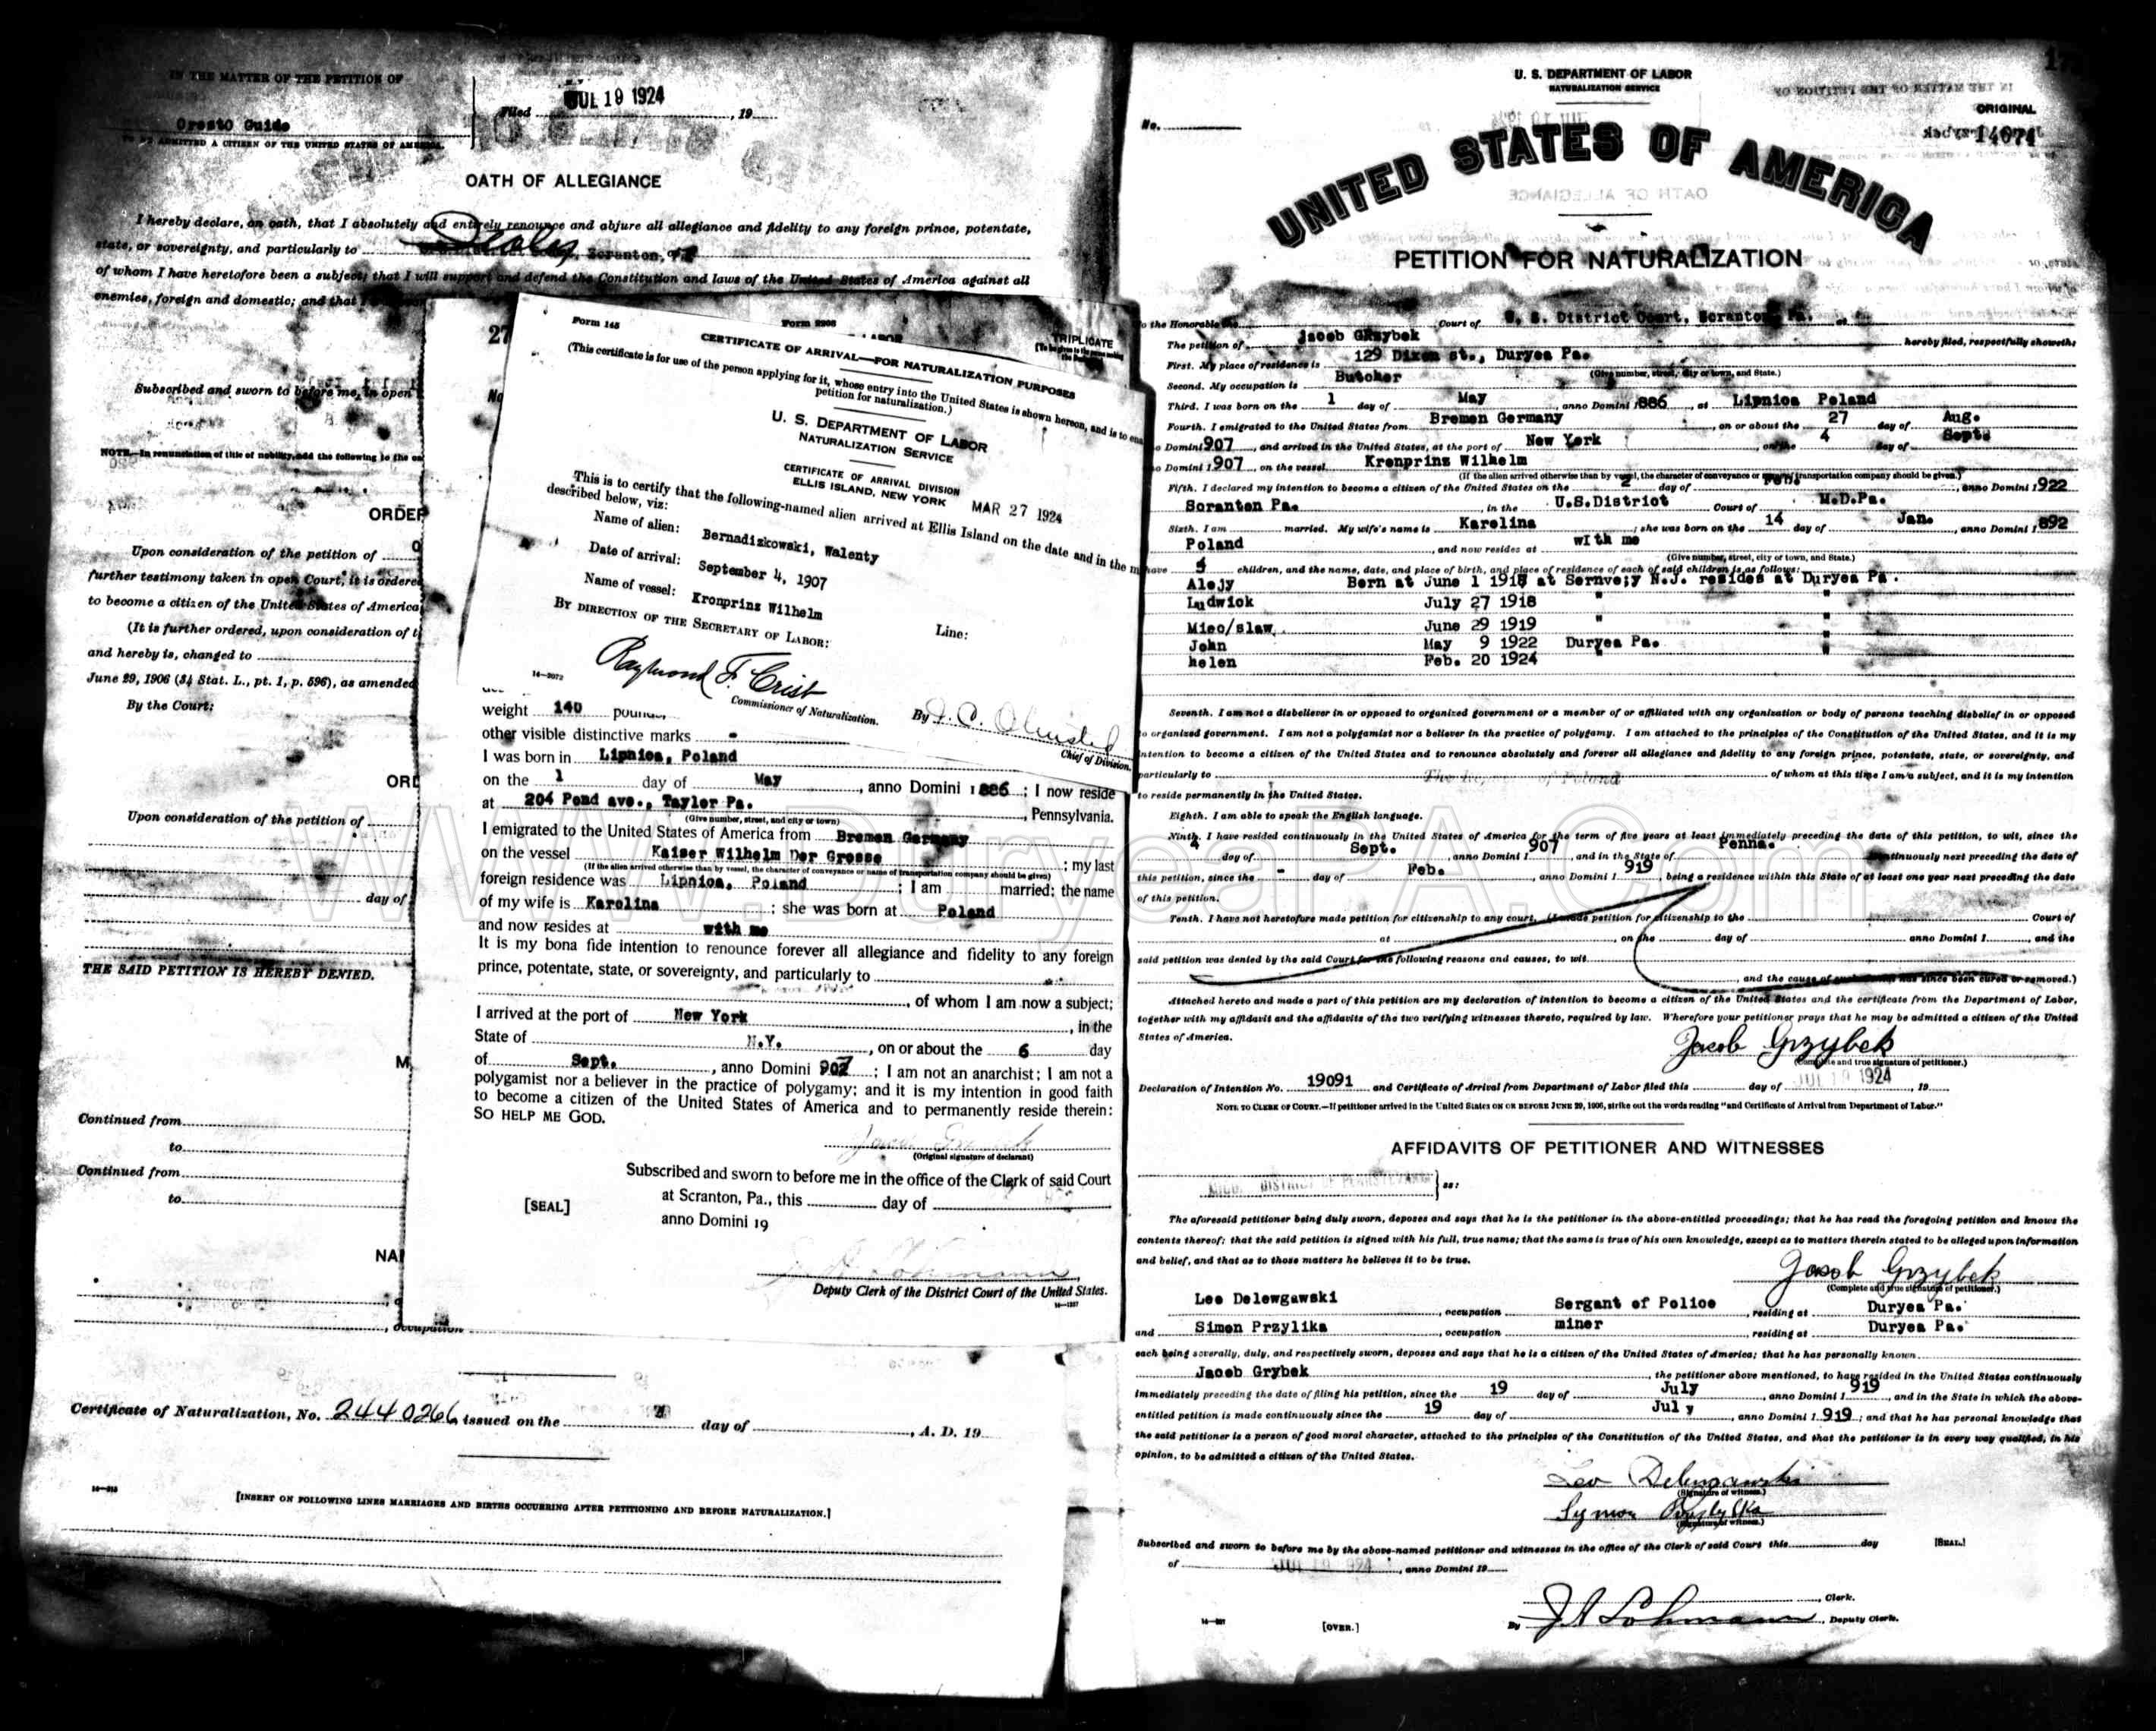 IN THE MATTER OF THE PETITION OF
Oresto Guide
TO BE ADMITTED A CITIZEN OF THE UNITED STATES OF AMERICA.
Filed JUL 19 1924, 19
OATH OF ALLEGIANCE
I hereby declare, on oath, that I absolutely and entirely renounce and abjure all allegiance and fidelity to any foreign prince, potentate,
state, or sovereignty, and particularly to Scranton,
of whom I have heretofore been a subject; that I will support and defend the Constitution and laws of the United States of America against all
enemies, foreign and domestic; and that I
Subscribed and sworn to before me, in open
NOTE.—In renunciation of title of nobility, add the following to the
ORDER
Upon consideration of the petition of
further testimony taken in open Court, it is ordered
to become a citizen of the United States of America
(It is further ordered, upon consideration of t
and hereby is, changed to
June 29, 1906 (34 Stat. L., pt. 1, p. 596), as amended
By the Court:
ORD
Upon consideration of the petition of
day of
THE SAID PETITION IS HEREBY DENIED.
M
Continued from
to
Continued from
to
NA
, occupation
Certificate of Naturalization, No. 2440266, issued on the day of , A. D. 19
14—213
[INSERT ON FOLLOWING LINES MARRIAGES AND BIRTHS OCCURRING AFTER PETITIONING AND BEFORE NATURALIZATION.]
27
No
Form 145
Form 2206
LABOR
TRIPLICATE
CERTIFICATE OF ARRIVAL—FOR NATURALIZATION PURPOSES
(This certificate is for use of the person applying for it, whose entry into the United States is shown hereon, and is to
petition for naturalization.)
U. S. DEPARTMENT OF LABOR
NATURALIZATION SERVICE
CERTIFICATE OF ARRIVAL DIVISION
ELLIS ISLAND, NEW YORK MAR 27 1924
This is to certify that the following-named alien arrived at Ellis Island on the date and in the m
described below, viz:
Name of alien: Bernadizkowski, Walenty
Date of arrival: September 4, 1907
Name of vessel: Kronprinz Wilhelm Line:
BY DIRECTION OF THE SECRETARY OF LABOR:
Raymond F. Crist
Commissioner of Naturalization.
14—3072
By J. C. Olmsted
Chief of Division.
weight 140 pounds,
other visible distinctive marks -
I was born in Lipnica, Poland
on the 1 day of May, anno Domini 1 886; I now reside
at 204 Pond ave., Taylor Pa., Pennsylvania.
(Give number, street, and city or town)
I emigrated to the United States of America from Bremen Germany
on the vessel Kaiser Wilhelm Der Grosse; my last
(If the alien arrived otherwise than by vessel, the character of conveyance or name of transportation company should be given)
foreign residence was Lipnica, Poland; I am married; the name
of my wife is Karolina; she was born at Poland
and now resides at with me
It is my bona fide intention to renounce forever all allegiance and fidelity to any foreign
prince, potentate, state, or sovereignty, and particularly to
, of whom I am now a subject;
I arrived at the port of New York, in the
State of N.Y., on or about the 6 day
of Sept., anno Domini 907; I am not an anarchist; I am not a
polygamist nor a believer in the practice of polygamy; and it is my intention in good faith
to become a citizen of the United States of America and to permanently reside therein:
SO HELP ME GOD.
(Original signature of declarant)
Subscribed and sworn to before me in the office of the Clerk of said Court
at Scranton, Pa., this day of
[SEAL] anno Domini 19
J A Lohmann
Deputy Clerk of the District Court of the United States.
14—1227
U. S. DEPARTMENT OF LABOR
NATURALIZATION SERVICE
No.
ORIGINAL
14074
UNITED STATES OF AMERICA
PETITION FOR NATURALIZATION
To the Honorable the Court of U. S. District Court, Scranton, Pa.
The petition of Jacob GRzybek hereby filed, respectfully showeth:
First. My place of residence is 129 Dixon st., Duryea Pa.
(Give number, street, city or town, and State.)
Second. My occupation is Butcher
Third. I was born on the 1 day of May, anno Domini 1886, at Lipnica Poland
Fourth. I emigrated to the United States from Bremen Germany, on or about the 27 day of Aug.
Domini 907, and arrived in the United States, at the port of New York, on the 4 day of Sept.
Domini 1907, on the vessel Kronprinz Wilhelm
(If the alien arrived otherwise than by vessel, the character of conveyance or name of transportation company should be given.)
Fifth. I declared my intention to become a citizen of the United States on the 2 day of Feb., anno Domini 1922
Scranton Pa., in the U.S.District Court of M.D.Pa.
Sixth. I am married. My wife's name is Karolina; she was born on the 14 day of Jan., anno Domini 1892
Poland, and now resides at with me
(Give number, street, city or town, and State.)
have 5 children, and the name, date, and place of birth, and place of residence of each of said children is as follows:
Alojy Born at June 1 1915 at Sernve;y N.J. resides at Duryea Pa.
Ludwick July 27 1918 " "
Mieo/slaw June 29 1919 " "
John May 9 1922 Duryea Pa. "
helen Feb. 20 1924 " "
Seventh. I am not a disbeliever in or opposed to organized government or a member of or affiliated with any organization or body of persons teaching disbelief in or opposed
to organized government. I am not a polygamist nor a believer in the practice of polygamy. I am attached to the principles of the Constitution of the United States, and it is my
intention to become a citizen of the United States and to renounce absolutely and forever all allegiance and fidelity to any foreign prince, potentate, state, or sovereignty, and
particularly to of Poland of whom at this time I am a subject, and it is my intention
to reside permanently in the United States.
Eighth. I am able to speak the English language.
Ninth. I have resided continuously in the United States of America for the term of five years at least immediately preceding the date of this petition, to wit, since the
4 day of Sept., anno Domini 1 907, and in the State of Penna. continuously next preceding the date of
this petition, since the - day of Feb., anno Domini 1 919, being a residence within this State of at least one year next preceding the date
of this petition.
Tenth. I have not heretofore made petition for citizenship to any court. (I made petition for citizenship to the Court of
at , on the day of anno Domini 1 , and the
said petition was denied by the said Court for the following reasons and causes, to wit
, and the cause of such denial has since been cured or removed.)
Attached hereto and made a part of this petition are my declaration of intention to become a citizen of the United States and the certificate from the Department of Labor,
together with my affidavit and the affidavits of the two verifying witnesses thereto, required by law. Wherefore your petitioner prays that he may be admitted a citizen of the United
States of America.
Jacob Grzybek
(Complete and true signature of petitioner.)
Declaration of Intention No. 19091 and Certificate of Arrival from Department of Labor filed this day of JUL 19 1924, 19
NOTE TO CLERK OF COURT.—If petitioner arrived in the United States ON OR BEFORE JUNE 29, 1906, strike out the words reading "and Certificate of Arrival from Department of Labor."
AFFIDAVITS OF PETITIONER AND WITNESSES
DISTRICT OF PENNSYLVANIA ss:
The aforesaid petitioner being duly sworn, deposes and says that he is the petitioner in the above-entitled proceedings; that he has read the foregoing petition and knows the
contents thereof; that the said petition is signed with his full, true name; that the same is true of his own knowledge, except as to matters therein stated to be alleged upon information
and belief, and that as to those matters he believes it to be true.
Jacob Grzybek
(Complete and true signature of petitioner.)
Leo Delewgawski, occupation Sergant of Police, residing at Duryea Pa.
and Simon Przylika, occupation miner residing at Duryea Pa.
each being severally, duly, and respectively sworn, deposes and says that he is a citizen of the United States of America; that he has personally known
Jacob Grybek, the petitioner above mentioned, to have resided in the United States continuously
immediately preceding the date of filing his petition, since the 19 day of July, anno Domini 1 919, and in the State in which the above-
entitled petition is made continuously since the 19 day of July, anno Domini 1 919; and that he has personal knowledge that
the said petitioner is a person of good moral character, attached to the principles of the Constitution of the United States, and that the petitioner is in every way qualified, in his
opinion, to be admitted a citizen of the United States.
Leo
(Signature of witness.)
Symon
(Signature of witness.)
Subscribed and sworn to before me by the above-named petitioner and witnesses in the office of the Clerk of said Court this day [SEAL.]
of JUL 19 1924, anno Domini 19
, Clerk.
[OVER.] By J A Lohmann, Deputy Clerk.
www.DuryeaPA.com